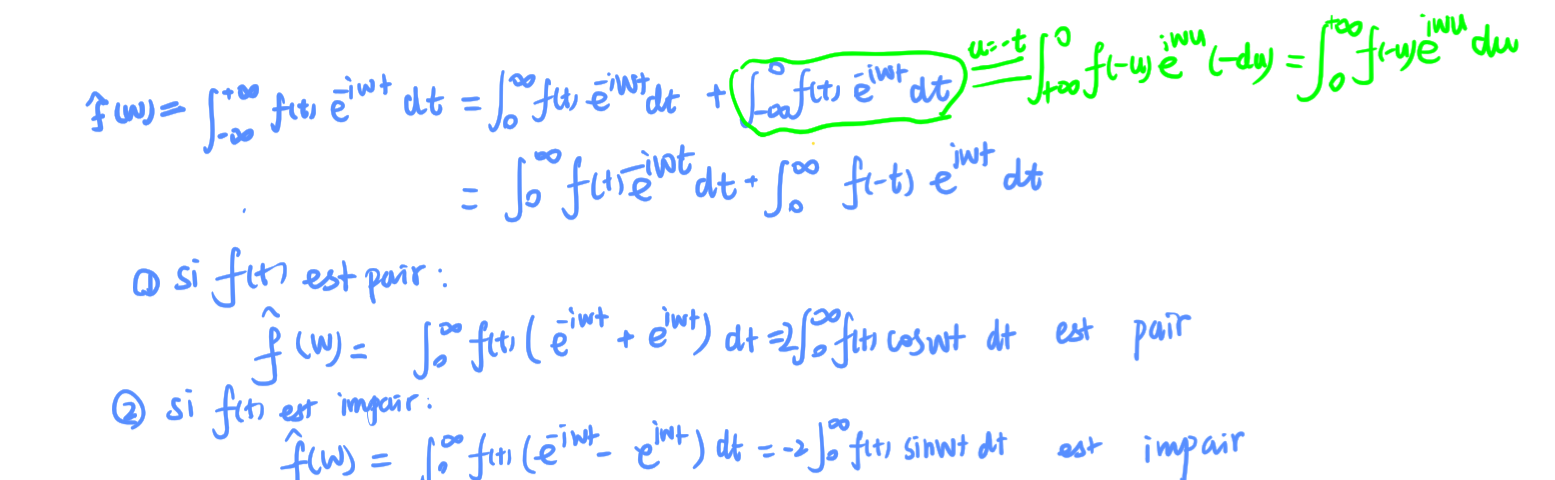 f̂(w) = ∫_{-∞}^{+∞} f(t) e^{-iwt} dt = ∫_0^∞ f(t) e^{-iwt} dt + ∫_{-∞}^0 f(t) e^{-iwt} dt =^{u=-t} ∫_{+∞}^0 f(-u) e^{iwu} (-du) = ∫_0^{+∞} f(-u) e^{iwu} du
= ∫_0^∞ f(t) e^{-iwt} dt + ∫_0^∞ f(-t) e^{iwt} dt
① si f(t) est pair :
f̂(w) = ∫_0^∞ f(t) (e^{-iwt} + e^{iwt}) dt = 2∫_0^∞ f(t) cos wt dt est pair
② si f(t) est impair :
f̂(w) = ∫_0^∞ f(t) (e^{-iwt} - e^{iwt}) dt = -2∫_0^∞ f(t) sin wt dt est impair